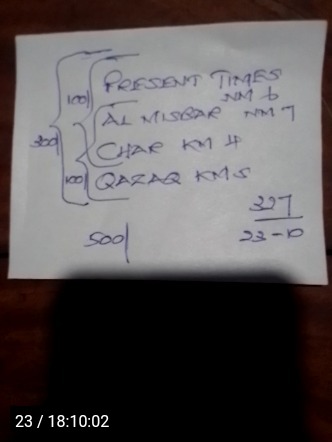 PRESENT TIMES
NM 6
100/
AL MISBAR NM 7
300/
CHAR KM 4
100/
QAZAQ KM 5
327
500/
23-10
23 / 18:10:02